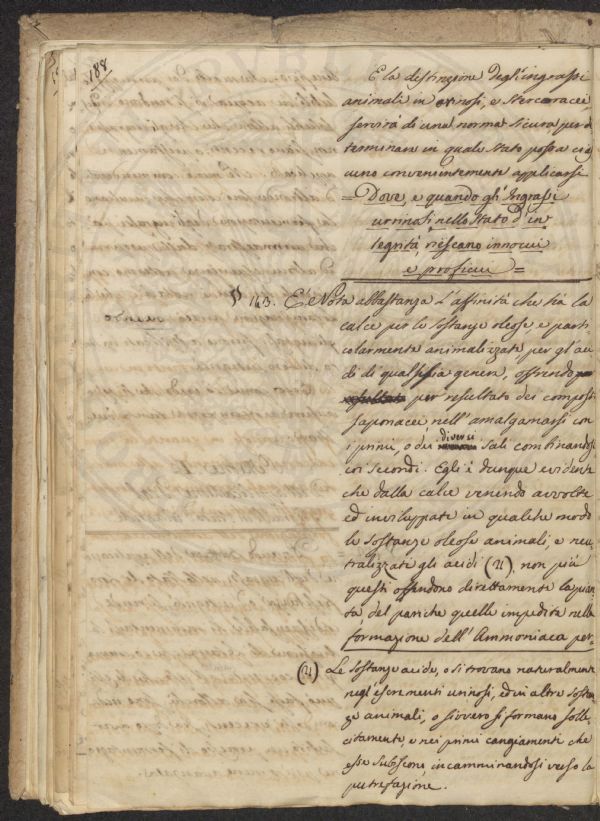 188
E la distinzione degl'ingrassi
animali in orinosi, e stercoracei
servirà di una norma sicura per de
terminare in quale stato possa cias
cuno convenientemente applicarsi
= Dove, e quando gli Ingrassi
urinosi nello stato d'in
tegrità, riescano innocui
e proficui =
§ 143. E' Nota abbastanza l'affinità che hà la
calce per le sostanze oleose, e parti
colarmente animalizzate per gl'aci
di di qualsisia genere, offrendo
per resultato dei composti
saponacei, nell'amalgamarsi con
i primi, o dei diversi sali combinandosi
coi secondi. Egli è dunque evidente
che dalla calce venendo avvolte
ed inviluppate in qualche modo
le sostanze oleose animali, e neu
tralizzati gli acidi (u), non più
questi offendono direttamente la pian
ta, del pari che quelle impedita nella
formazione dell'Ammoniaca per-
(u) Le sostanze acide, o si trovano naturalmente
negl'escrementi urinosi, ed in altre sostan
ze animali, o sivvero si formano solle
citamente, e nei primi cangiamenti che
esse subiscono, incamminandosi verso la
putrefazione.